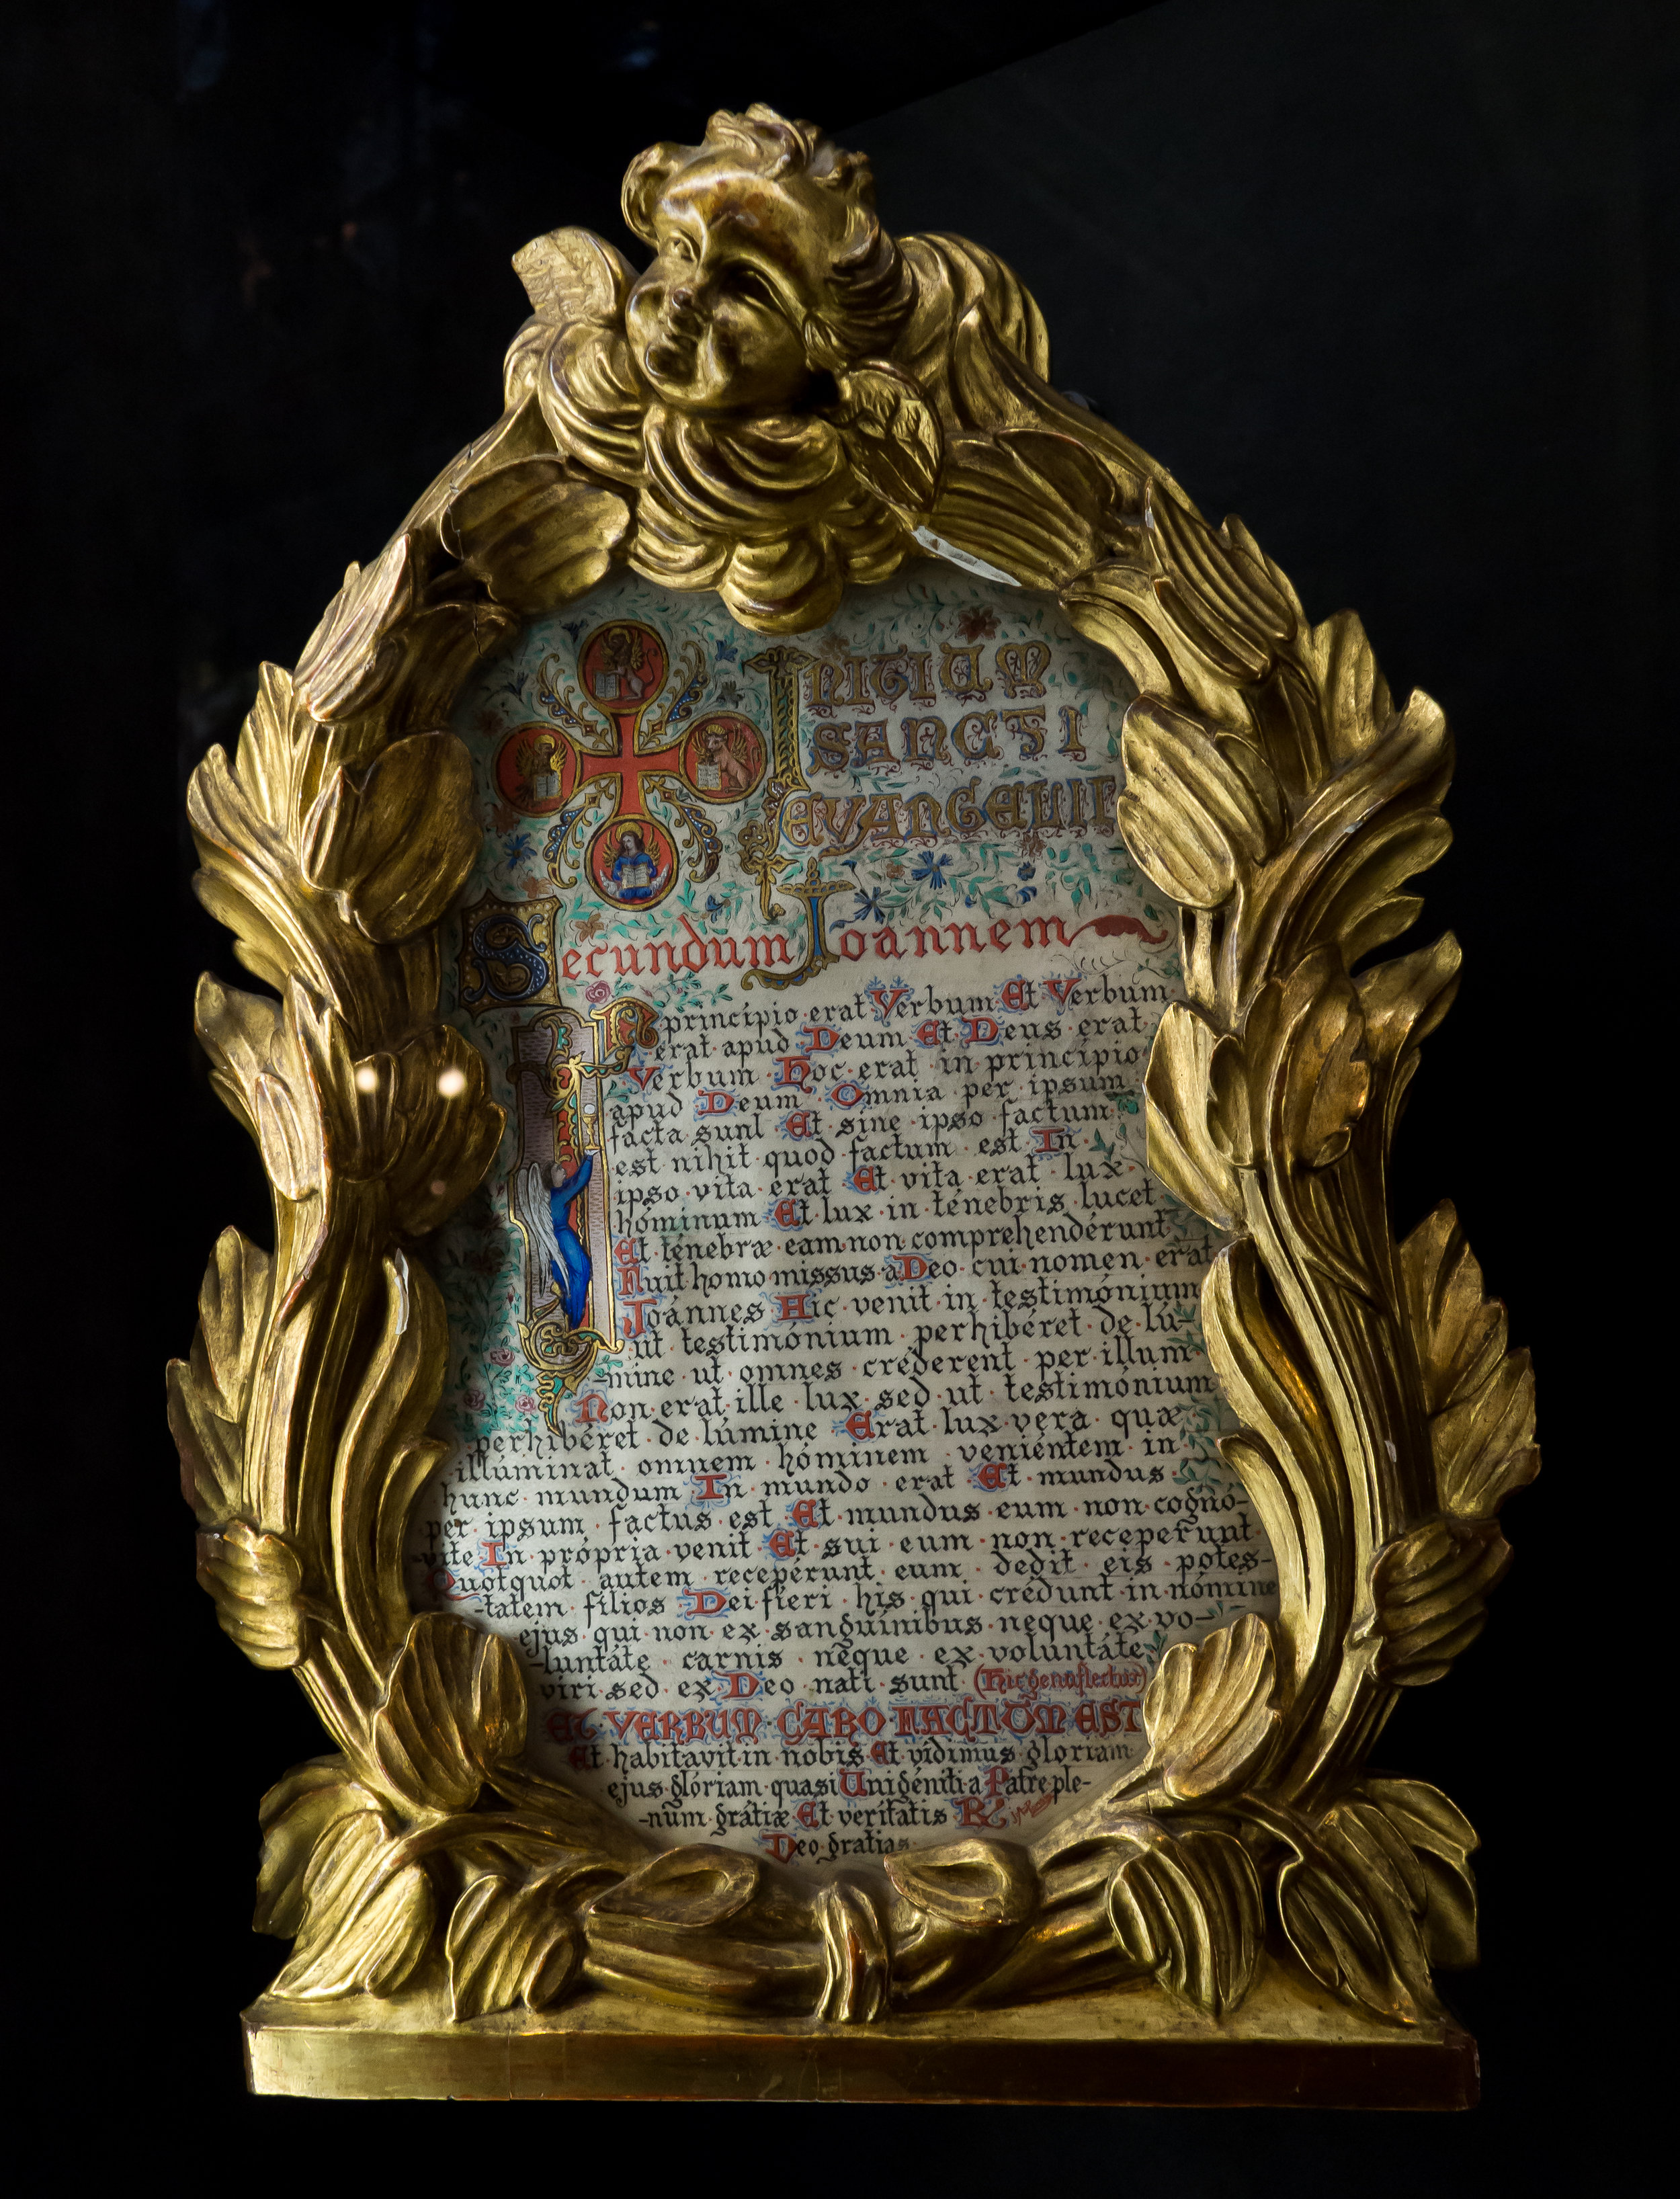 INITIUM
SANCTI
EVANGELII
Secundum Joannem
In principio erat Verbum Et Verbum
erat apud Deum Et Deus erat
Verbum Hoc erat in principio
apud Deum Omnia per ipsum
facta sunt Et sine ipso factum
est nihil quod factum est In
ipso vita erat Et vita erat lux
hóminum Et lux in ténebris lucet
Et ténebræ eam non comprehendérunt
Fuit homo missus a Deo cui nomen erat
Joánnes Hic venit in testimónium
ut testimónium perhibéret de lú-
-mine ut omnes créderent per illum
Non erat ille lux sed ut testimónium
perhibéret de lúmine Erat lux vera quæ
illúminat omnem hóminem veniéntem in
hunc mundum In mundo erat Et mundus
per ipsum factus est Et mundus eum non cognó-
-vite In própria venit Et sui eum non recepérunt
Quotquot autem recepérunt eum dedit eis potes-
-tatem fílios Dei fieri his qui crédunt in nómine
ejus qui non ex sanguínibus neque ex vo-
-luntáte carnis neque ex voluntáte
viri sed ex Deo nati sunt (Hic genuflectitur)
ET VERBUM CARO FACTUM EST
Et habitavit in nobis Et vídimus gloriam
ejus glóriam quasi Unigéniti a Patre ple-
-num grátiæ Et veritatis R.
Deo gratias